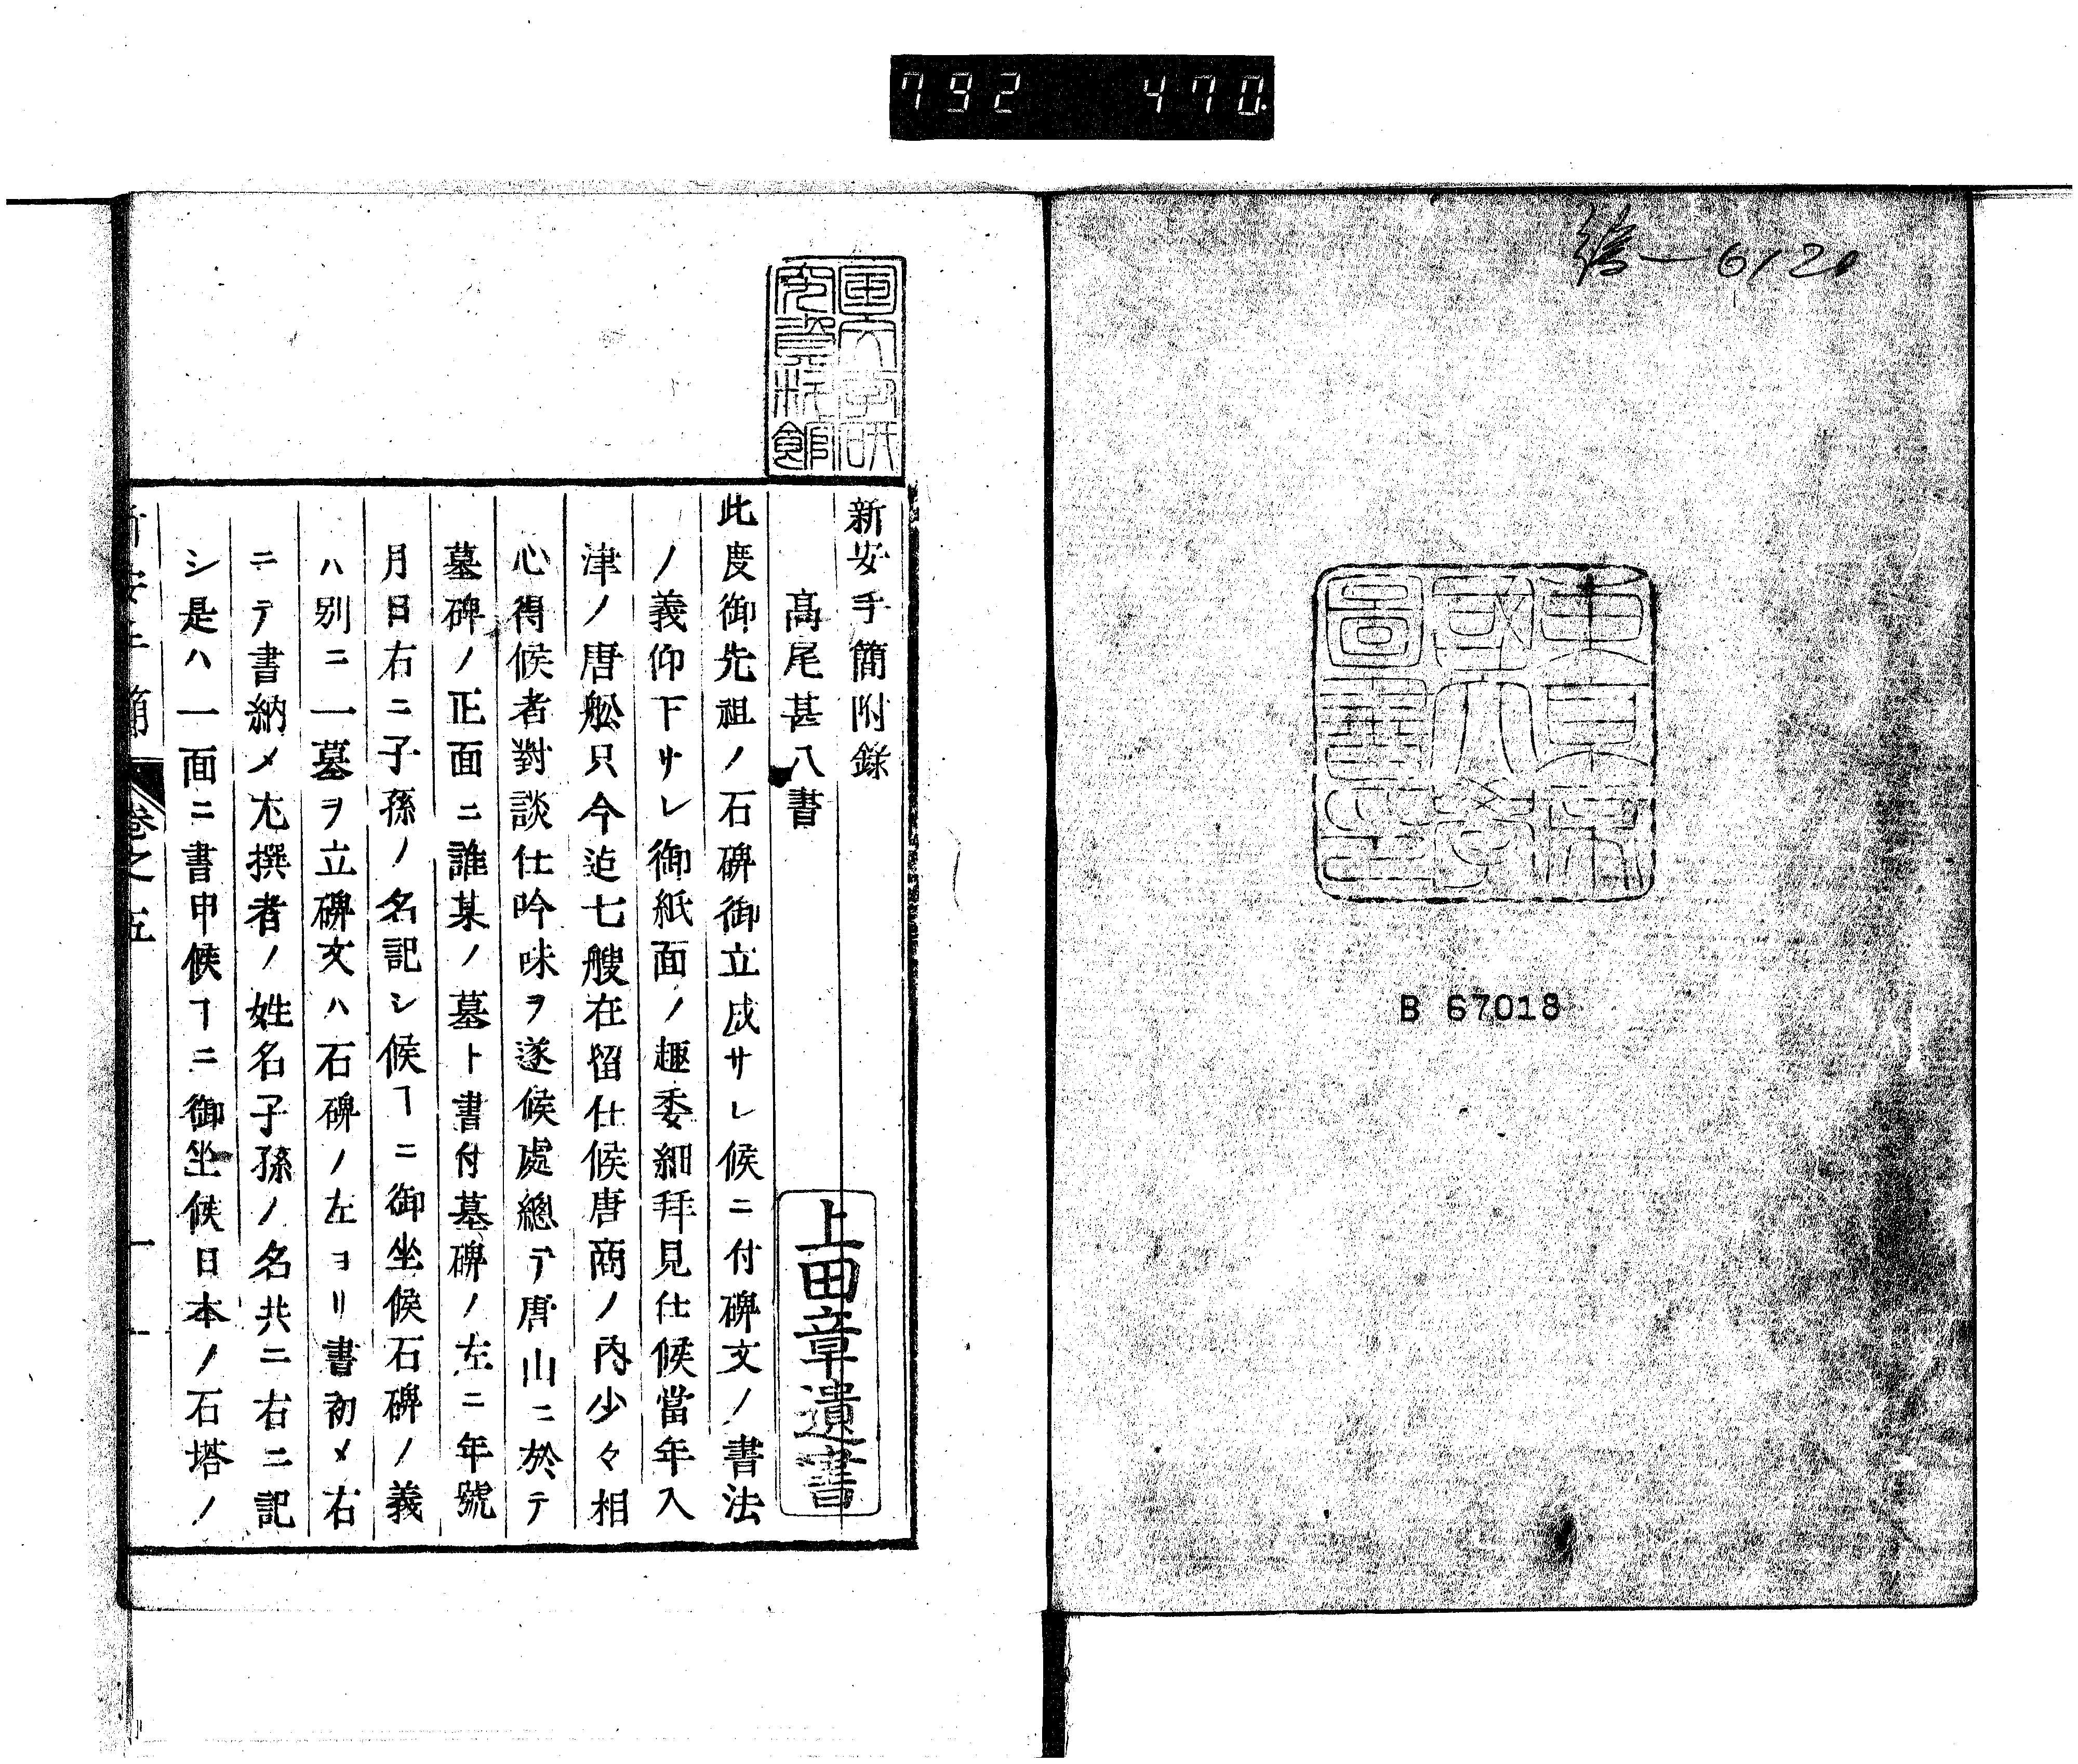 792 470.
繪—6120
東京帝
國大學
圖書印
B 67018
國文學研
究資料館
新安手簡附錄
高尾甚八書
上田章遺書
此度御先祖ノ石碑御立成サレ候ニ付碑文ノ書法
ノ義仰下サレ御紙面ノ趣委細拜見仕候當年入
津ノ唐舩只今迄七艘在留仕候唐商ノ內少々相
心得候者對談仕吟味ヲ遂候處總テ唐山ニ於テ
墓碑ノ正面ニ誰某ノ墓ト書付墓碑ノ左ニ年號
月日右ニ子孫ノ名記シ候ヿニ御坐候石碑ノ義
ハ別ニ一墓ヲ立碑文ハ石碑ノ左ヨリ書初メ右
ニテ書納メ尤撰者ノ姓名子孫ノ名共ニ右ニ記
シ是ハ一面ニ書申候ヿニ御坐候日本ノ石塔ノ
新安手簡 卷之五 一